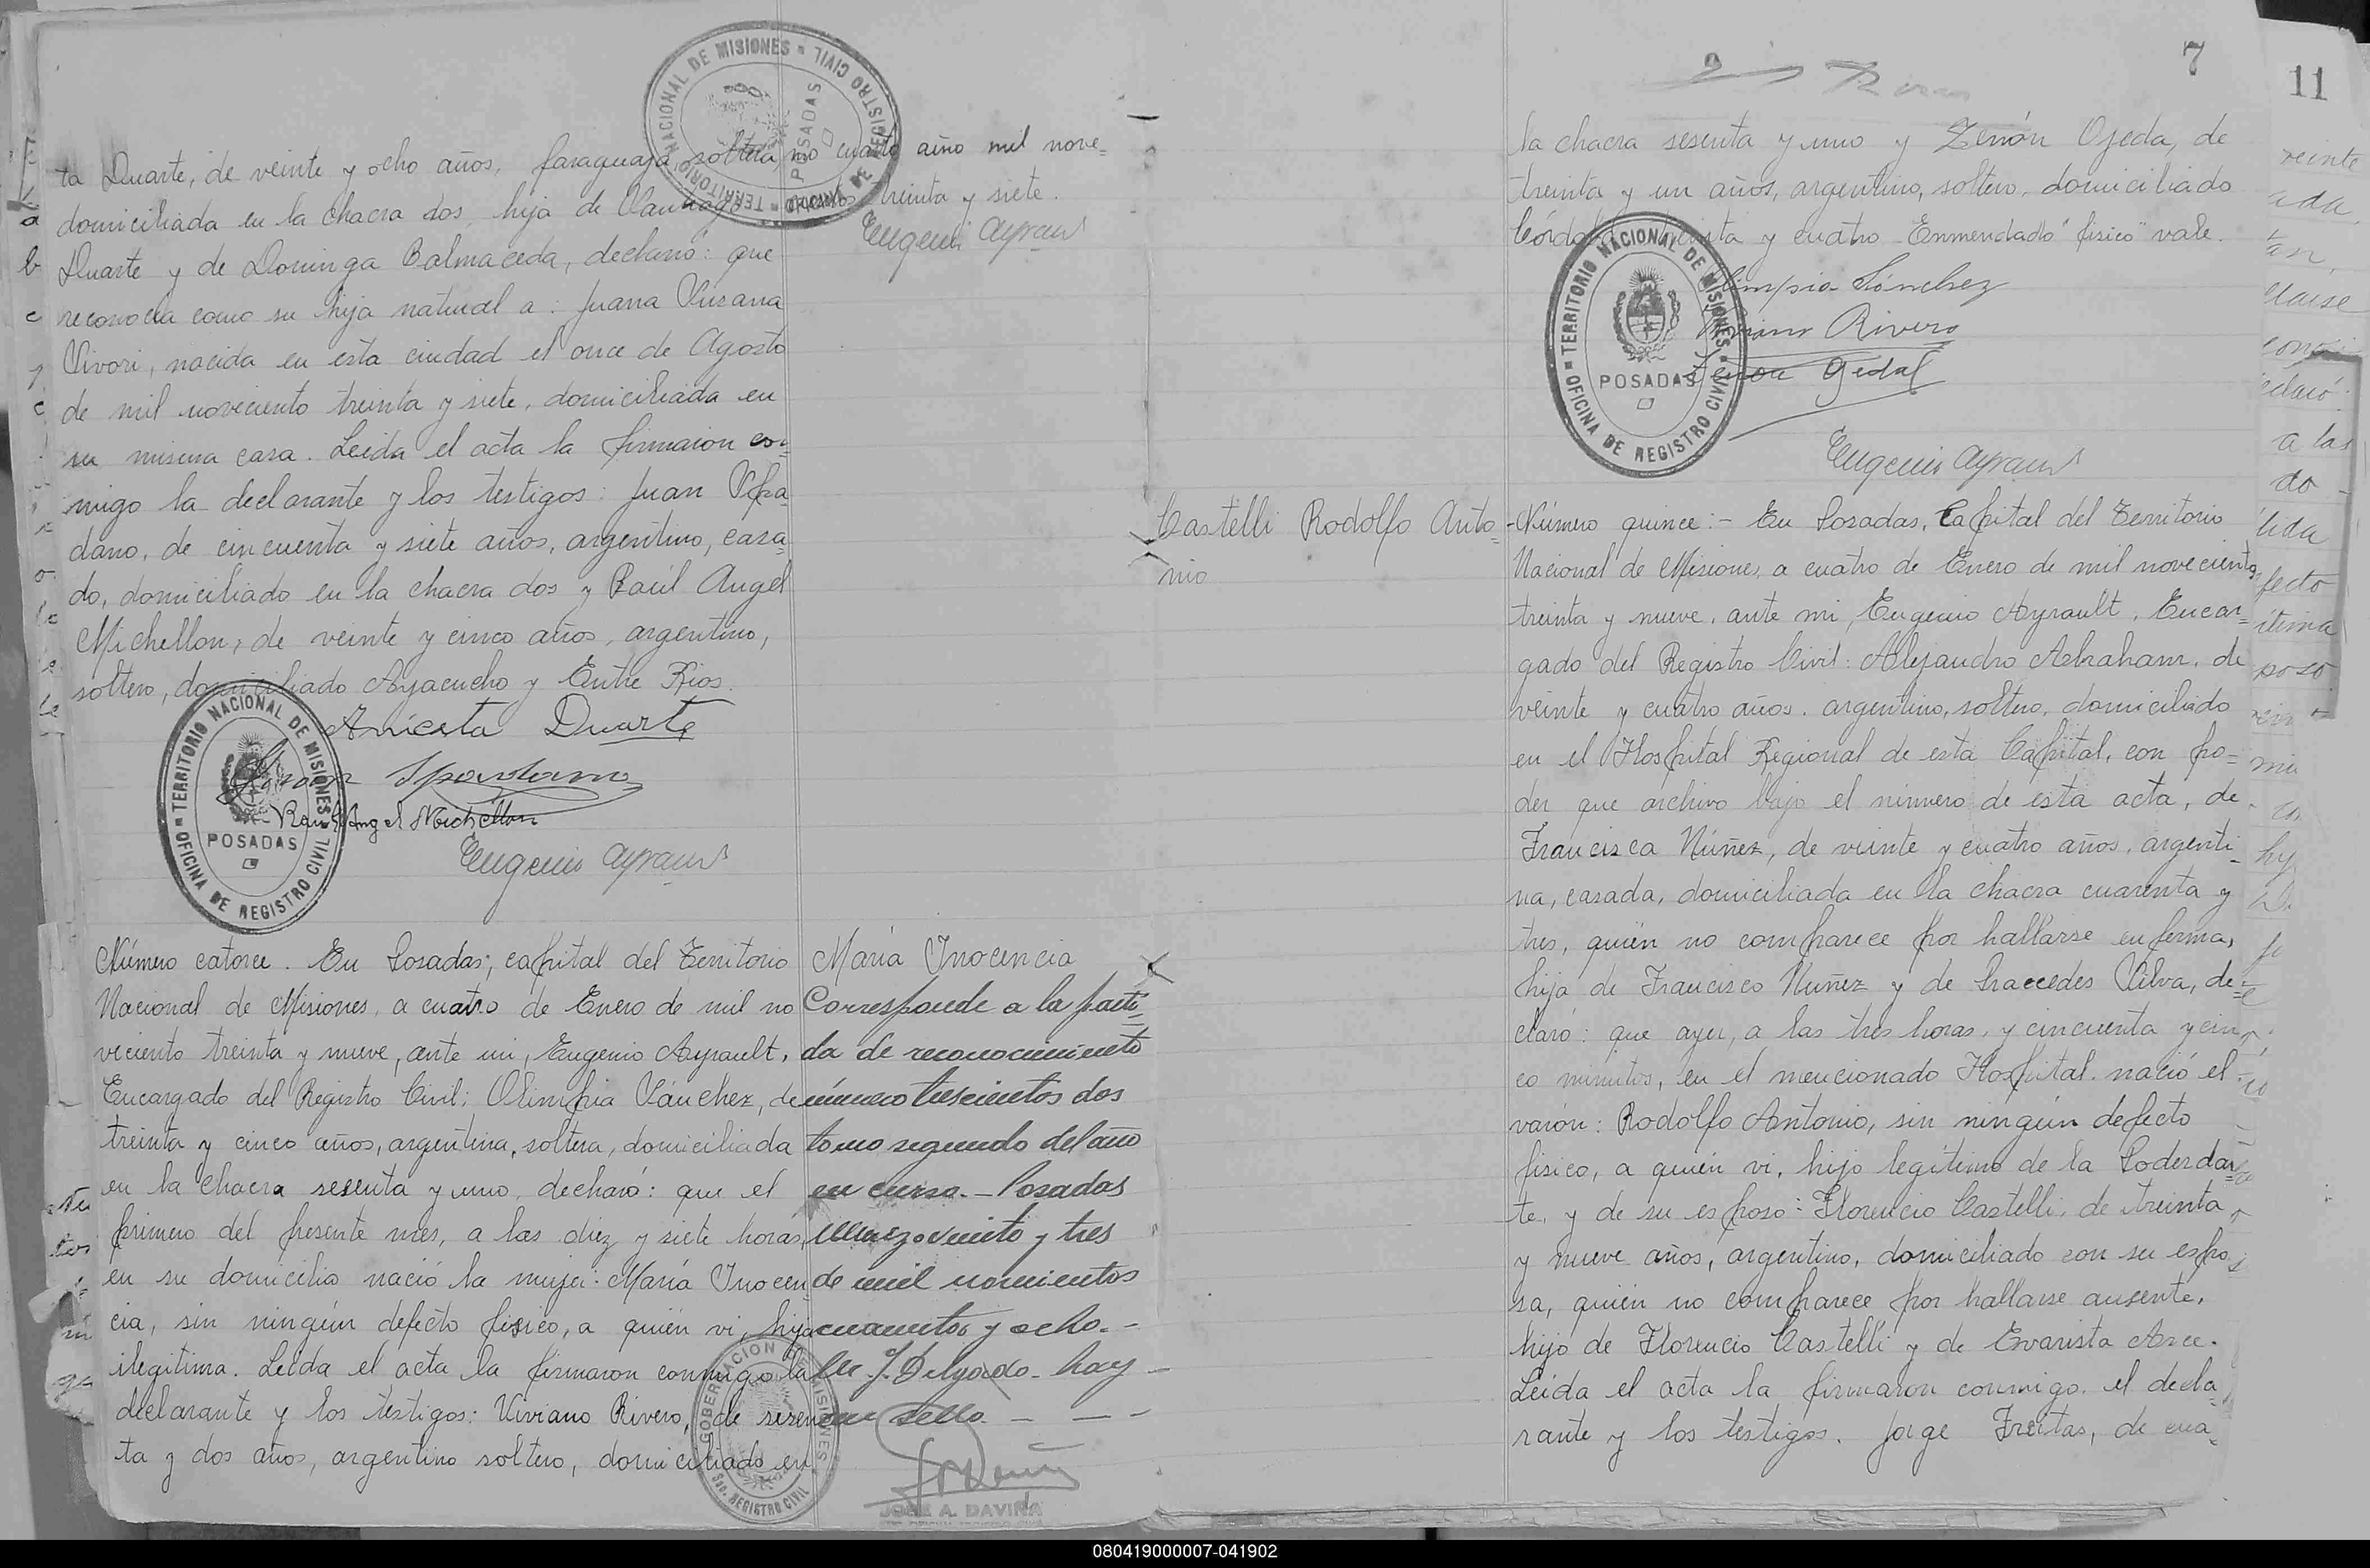 ta Duarte, de veinte y ocho años, paraguaya, soltera
domiciliada en la chacra dos, hija de Santiago
Duarte y de Dominga Balmaceda, declaró: que
reconocia como su hija natural a: Juana Susana
Sivori, nacida en esta ciudad el once de Agosto
de mil noveciento treinta y siete, domiciliada en
su misma casa. Leida el acta la firmaron co-
migo la declarante y los testigos: Juan Spa-
dano, de cincuenta y siete años, argentino, casa-
do, domiciliado en la chacra dos y Raúl Angel
Michellon, de veinte y cinco años, argentino,
soltero, domiciliado Ayacucho y Entre Rios.
Aniceta Duarte
Juan Spardano
Raul Angel Michellon
Eugenio Ayrault
mo cuarto año mil nove-
cientos treinta y siete.
Eugenio Ayrault
TERRITORIO NACIONAL DE MISIONES
OFICINA DE REGISTRO CIVIL
POSADAS
Número catorce. En Posadas, capital del Territorio
Nacional de Misiones, a cuatro de Enero de mil no
veciento treinta y nueve, ante mi, Eugenio Ayrault,
Encargado del Registro Civil: Olimpia Sánchez, de
treinta y cinco años, argentina, soltera, domiciliada
en la chacra sesenta y uno, declaró: que el
primero del presente mes, a las diez y siete horas,
en su domicilio nació la mujer: María Inocen
cia, sin ningún defecto fisico, a quién vi, hija
ilegitima. Leida el acta la firmaron conmigo la
declarante y los testigos: Viviano Rivero, de sesen
ta y dos años, argentino soltero, domiciliado en
María Inocencia
Corresponde a la parti-
da de reconocimiento
número trescientos dos
tomo segundo del año
en curso.- Posadas
marzo veinte y tres
de mil novecientos
cuarenta y ocho.-
J. Delgado- hay
un sello.
GOBERNACION DE MISIONES
Sec. REGISTRO CIVIL
JOSE A. DAVIÑA
7
11
la chacra sesenta y uno y Zenón Ojeda, de
treinta y un años, argentino, soltero, domiciliado
Córdoba y cuatro - Enmendado "fisico" vale.
Olimpia Sánchez
Viviano Rivero
Eugenio Ayrault
TERRITORIO NACIONAL DE MISIONES
OFICINA DE REGISTRO CIVIL
POSADAS
Castelli Rodolfo Anto-
nio
-Número quince:- En Posadas, Capital del Territorio
Nacional de Misiones, a cuatro de Enero de mil noveciento
treinta y nueve, ante mi, Eugenio Ayrault, Encar-
gado del Registro Civil: Alejandro Abraham, de
veinte y cuatro años, argentino, soltero, domiciliado
en el Hospital Regional de esta Capital, con po-
der que archivo bajo el número de esta acta, de
Francisca Núñez, de veinte y cuatro años, argenti-
na, casada, domiciliada en la chacra cuarenta y
tres, quién no comparece por hallarse enferma,
hija de Francisco Nuñez y de Silva, de-
claró: que ayer, a las tres horas, y cincuenta y cin-
co minutos, en el mencionado Hospital, nació el
varón: Rodolfo Antonio, sin ningún defecto
fisico, a quién vi, hijo legítimo de la Poderdan-
te, y de su esposo: Florencio Castelli, de treinta
y nueve años, argentino, domiciliado con su espo-
sa, quién no comparece por hallarse ausente,
hijo de Florencio Castelli y de Evarista Arce.
Leida el acta la firmaron conmigo, el decla-
rante y los testigos. Jorge Freitas, de cua-
080419000007-041902